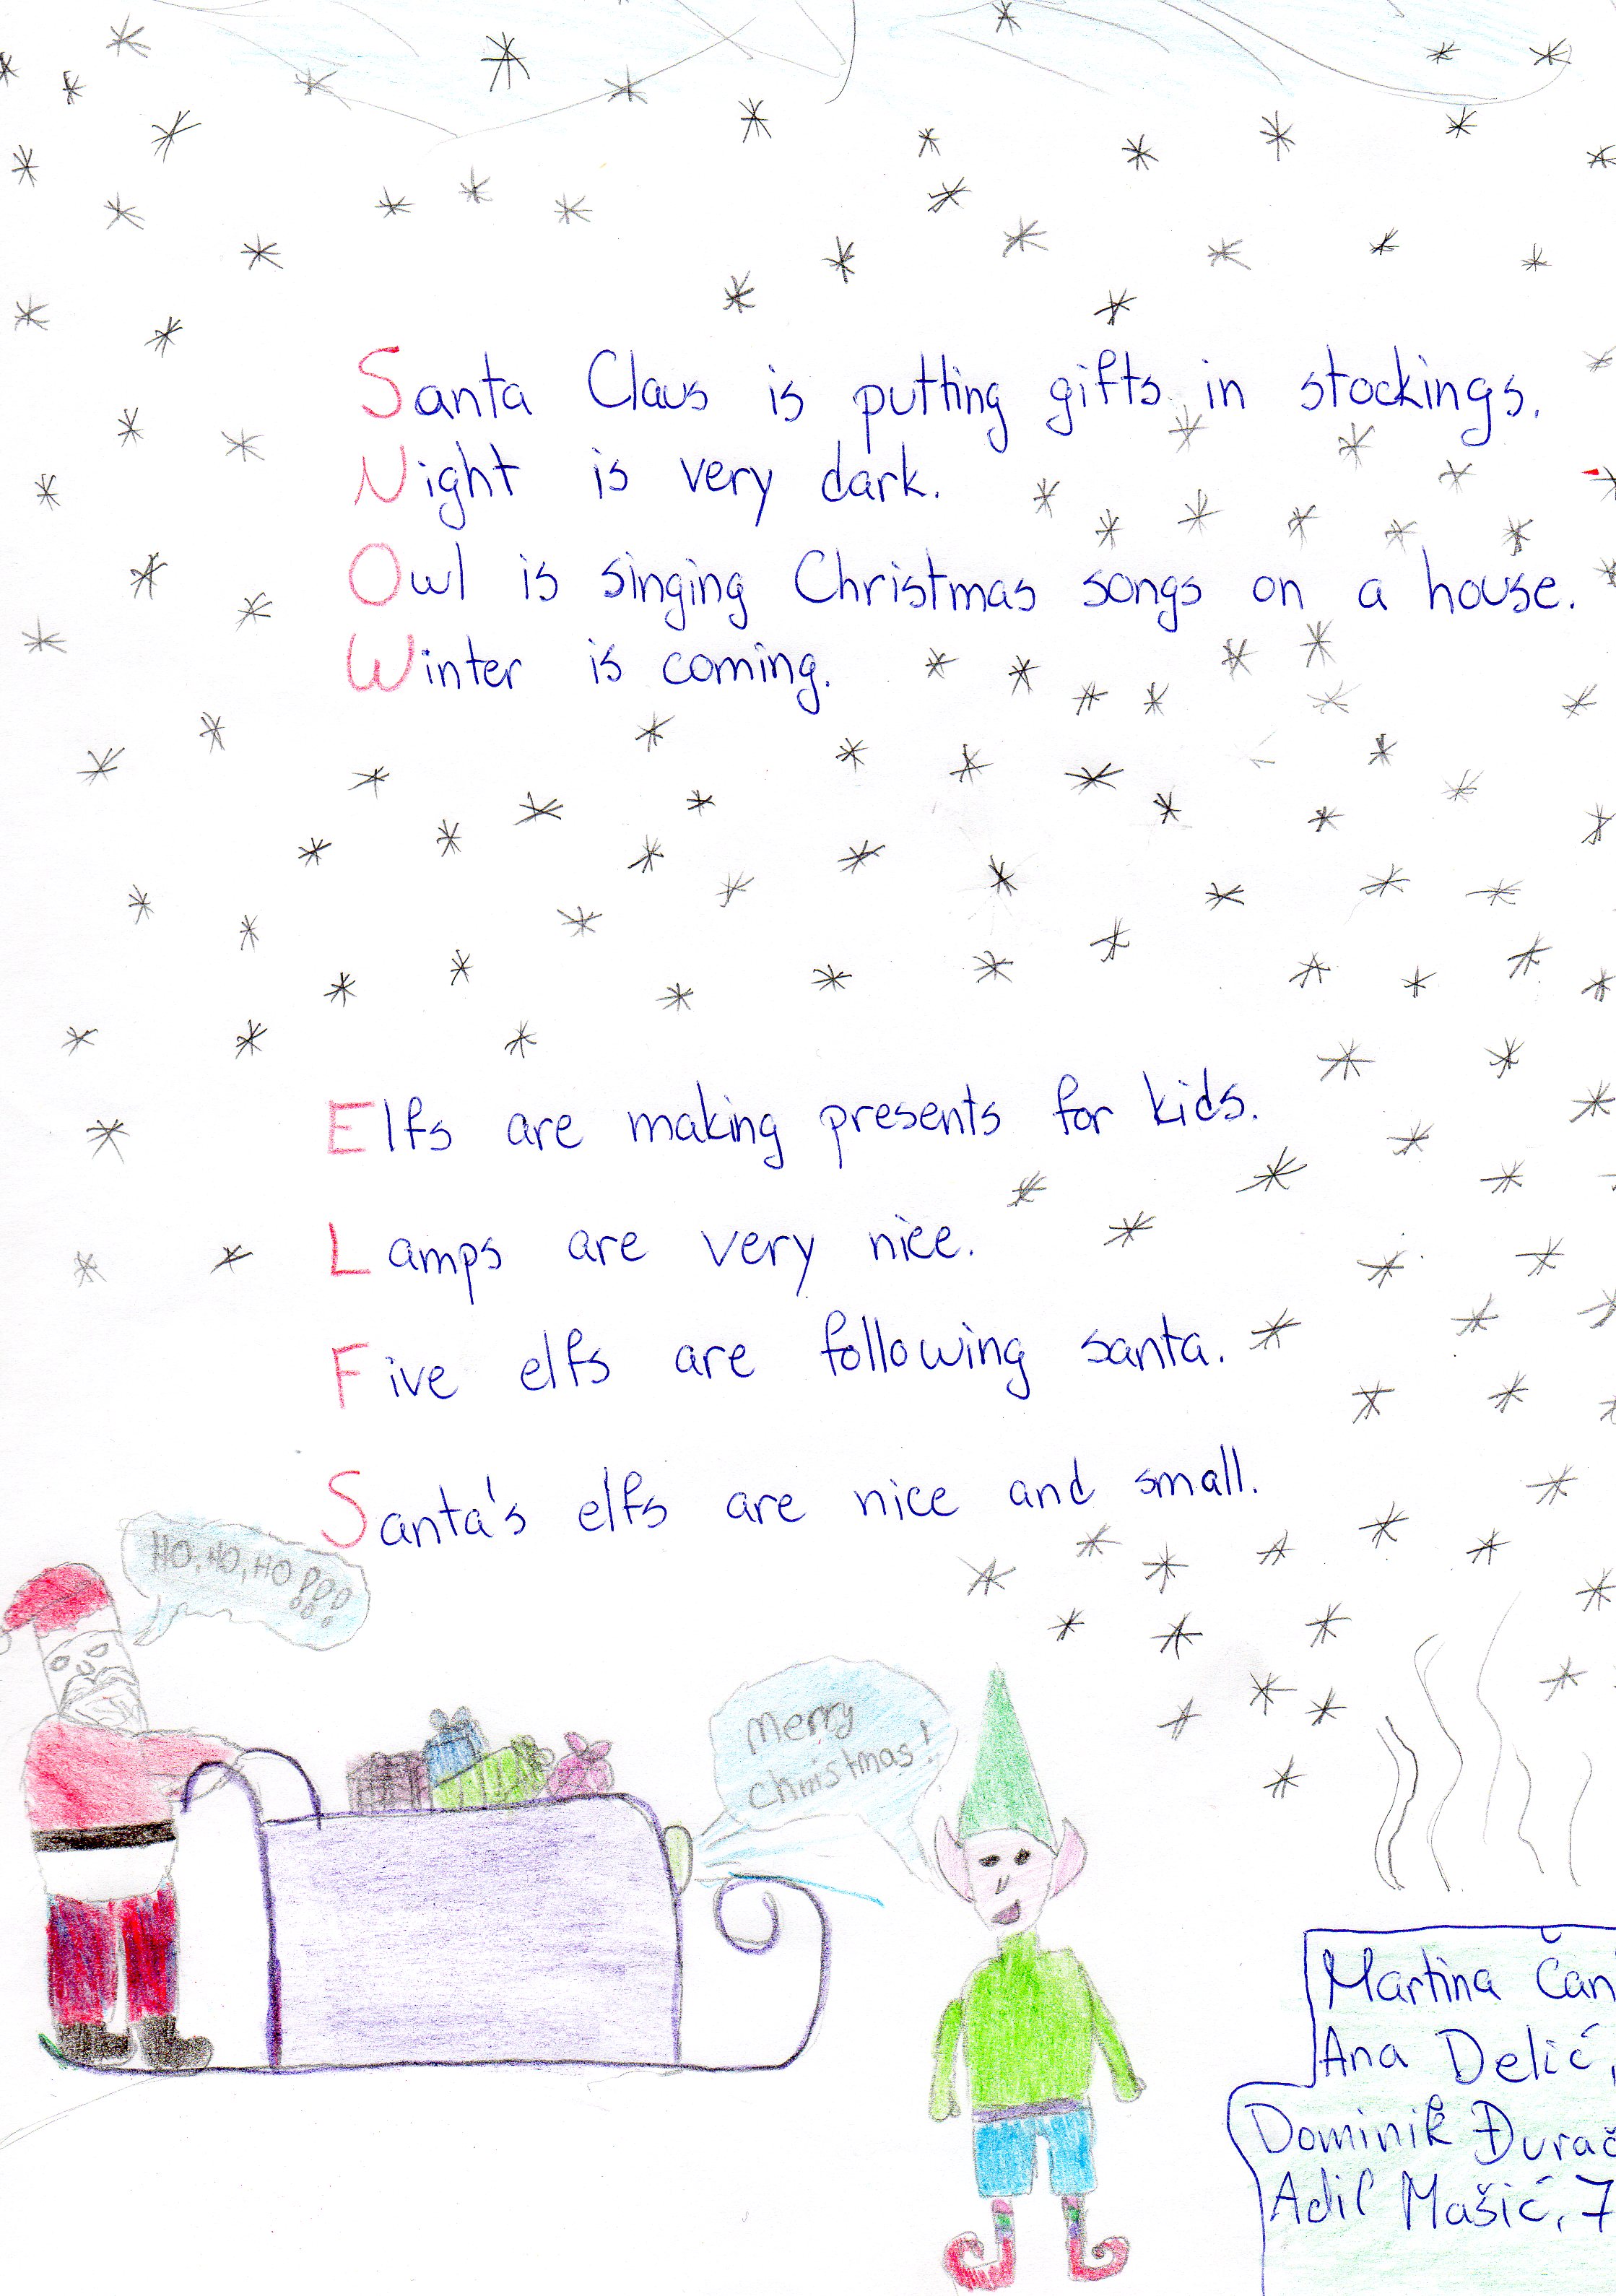 Santa Claus is putting gifts in stockings.
Night is very dark.
Owl is singing Christmas songs on a house.
Winter is coming.
Elfs are making presents for kids.
Lamps are very nice.
Five elfs are following santa.
Santa's elfs are nice and small.
HO, HO, HO!!!
Merry
christmas!
Martina Čan
Ana Delić,
Dominik Đurač
Adil Mašić, 7